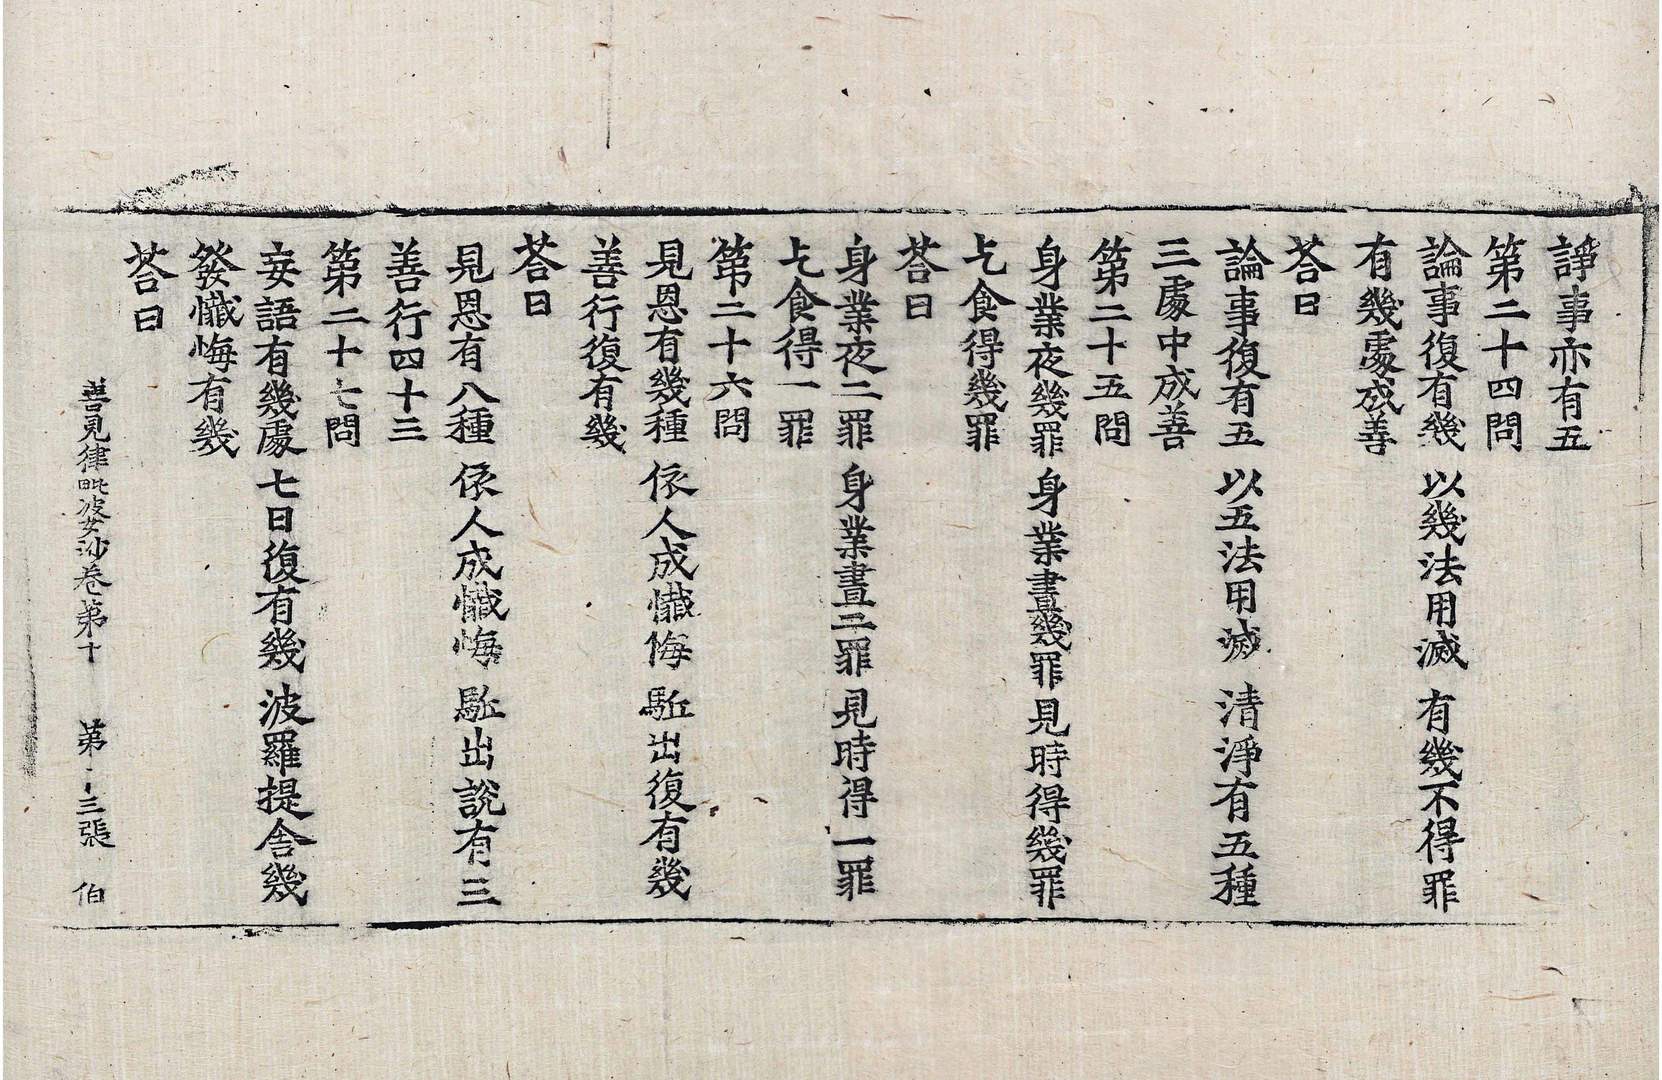 諍事亦有五
第二十四問
論事復有幾 以幾法用滅 有幾不得罪
有幾處成善
荅曰
論事復有五 以五法用滅 清淨有五種
三處中成善
第二十五問
身業夜幾罪 身業晝幾罪 見時得幾罪
乞食得幾罪
荅曰
身業夜二罪 身業晝二罪 見時得一罪
乞食得一罪
第二十六問
見恩有幾種 依人成懺悔 駈出復有幾
善行復有幾
荅曰
見恩有八種 依人成懺悔 駈出說有三
善行四十三
第二十七問
妄語有幾處 七日復有幾 波羅提舍幾
發懺悔有幾
荅曰
善見律毗婆沙卷第十 第十三張 伯